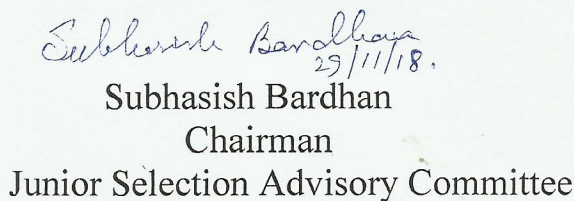 Subhasish Bardhan
29/11/18.
Subhasish Bardhan
Chairman
Junior Selection Advisory Committee